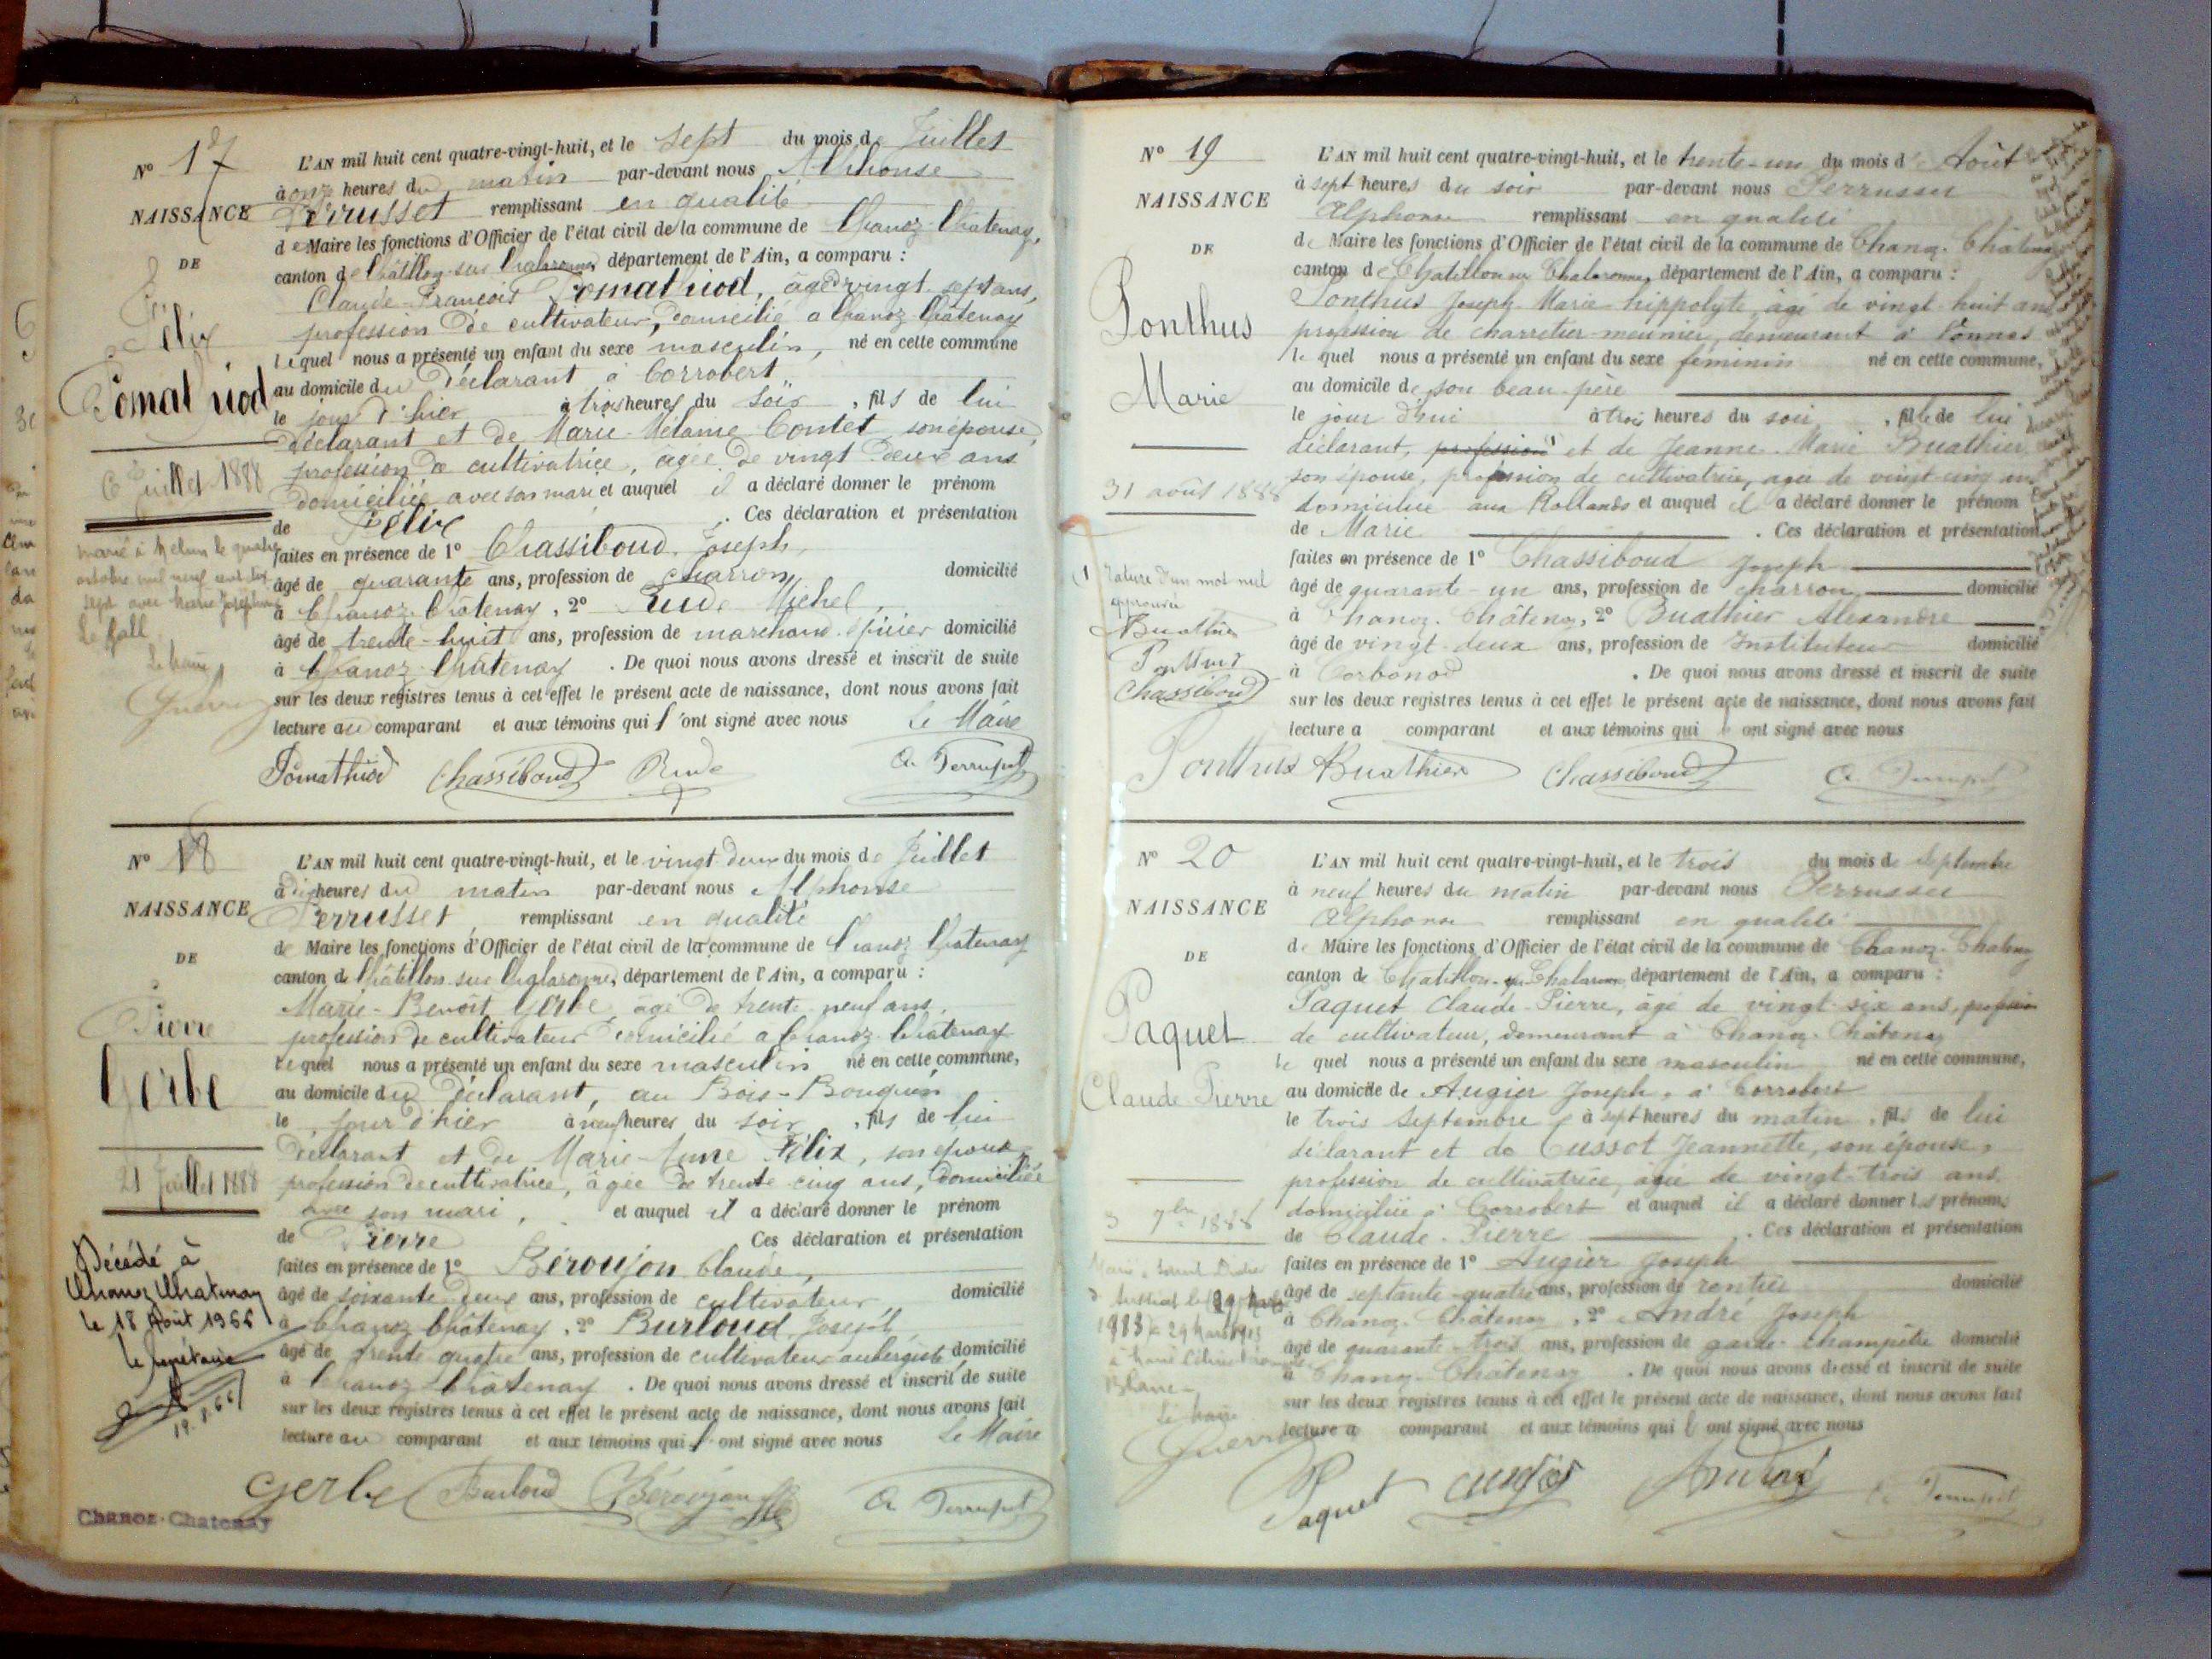 N° 17
NAISSANCE
DE
Félix
Pomathiod
6 Juillet 1888
marié à Melun le quatre
octobre mil neuf cent dix
sept avec Marie Joséphine
Le Gall
Le Maire
Guerry
L'AN mil huit cent quatre-vingt-huit, et le sept du mois de Juillet
à onze heures du matin par-devant nous Alphonse
Perrusset remplissant en qualité
de Maire les fonctions d'Officier de l'état civil de la commune de Chanoz-Châtenay,
canton de Châtillon-sur-Chalaronne, département de l'Ain, a comparu :
Claude-François Pomathiod, âgé de vingt-sept ans,
profession de cultivateur, domicilié à Chanoz-Châtenay
lequel nous a présenté un enfant du sexe masculin, né en cette commune
au domicile du déclarant à Corrobert
le jour d'hier à trois heures du soir, fils de lui
déclarant et de Marie-Mélanie Contet son épouse,
profession de cultivatrice, âgée de vingt deux ans
domiciliée avec son mari et auquel il a déclaré donner le prénom
de Félix . Ces déclaration et présentation
faites en présence de 1° Chassiboud, Joseph,
âgé de quarante ans, profession de charron, domicilié
à Chanoz-Châtenay, 2° Rude Michel,
âgé de trente-huit ans, profession de marchand épicier domicilié
à Chanoz-Châtenay . De quoi nous avons dressé et inscrit de suite
sur les deux registres tenus à cet effet le présent acte de naissance, dont nous avons fait
lecture au comparant et aux témoins qui l'ont signé avec nous Le Maire
Pomathiod Chassiboud Rude A. Perrusset
N° 18
NAISSANCE
DE
Pierre
Gerbe
21 Juillet 1888
Décédé à
Chanoz Chatenay
le 18 Août 1966
le secrétaire
19.8.66
L'AN mil huit cent quatre-vingt-huit, et le vingt deux du mois de Juillet
à dix heures du matin par-devant nous Alphonse
Perrusset remplissant en qualité
de Maire les fonctions d'Officier de l'état civil de la commune de Chanoz-Châtenay
canton de Châtillon-sur-Chalaronne, département de l'Ain, a comparu :
Marie-Benoît Gerbe, âgé de trente neuf ans,
profession de cultivateur domicilié à Chanoz-Châtenay
lequel nous a présenté un enfant du sexe masculin né en cette commune,
au domicile du déclarant, au Bois-Bouquin
le jour d'hier à neuf heures du soir, fils de lui
déclarant et de Marie-Anne Félix, son épouse
profession de cultivatrice, âgée de trente-cinq ans, domiciliée
avec son mari, et auquel il a déclaré donner le prénom
de Pierre Ces déclaration et présentation
faites en présence de 1° Béroujon Claude,
âgé de soixante deux ans, profession de cultivateur, domicilié
à Chanoz-Châtenay, 2° Burloud, Joseph,
âgé de trente quatre ans, profession de cultivateur aubergiste domicilié
à Chanoz-Châtenay . De quoi nous avons dressé et inscrit de suite
sur les deux registres tenus à cet effet le présent acte de naissance, dont nous avons fait
lecture au comparant et aux témoins qui l'ont signé avec nous Le Maire
Gerbe Burloud Béroujon A. Perrusset
Chanoz-Chatenay
N° 19
NAISSANCE
DE
Ponthus
Marie
31 août 1888
(1) Rature d'un mot nul
approuvée
Buathier
Ponthus
Chassiboud
L'AN mil huit cent quatre-vingt-huit, et le trente-un du mois d'Août
à sept heures du soir par-devant nous Perrusset
Alphonse remplissant en qualité
de Maire les fonctions d'Officier de l'état civil de la commune de Chanoz-Châtenay
canton de Chatillon sur Chalaronne, département de l'Ain, a comparu :
Ponthus Joseph Marie hippolyte âgé de vingt-huit ans
profession de charretier-meunier, demeurant à Vonnas
le quel nous a présenté un enfant du sexe féminin né en cette commune,
au domicile de son beau-père
le jour d'hui à trois heures du soir, fille de lui
déclarant, profession et de Jeanne-Marie Buathier,
son épouse, profession de cultivatrice, agée de vingt-cinq ans
domiciliée aux Rollands et auquel il a déclaré donner le prénom
de Marie . Ces déclaration et présentation
faites en présence de 1° Chassiboud Joseph
âgé de quarante-un ans, profession de charron, domicilié
à Chanoz-Châtenay, 2° Buathier Alexandre
âgé de vingt-deux ans, profession de Instituteur domicilié
à Corbonod . De quoi nous avons dressé et inscrit de suite
sur les deux registres tenus à cet effet le présent acte de naissance, dont nous avons fait
lecture a comparant et aux témoins qui l ont signé avec nous
Ponthus Buathier Chassiboud A. Perrusset
N° 20
NAISSANCE
DE
Paquet
Claude Pierre
3 7bre 1888
Marié à Saint Didier
29 Mars 1913
Blanc
Le Maire
Guerry
L'AN mil huit cent quatre-vingt-huit, et le trois du mois de Septembre
à neuf heures du matin par-devant nous Perrusset
Alphonse remplissant en qualité
de Maire les fonctions d'Officier de l'état civil de la commune de Chanoz-Châtenay
canton de Chatillon-sur-Chalaronne, département de l'Ain, a comparu :
Paquet Claude-Pierre, âgé de vingt-six ans, profession
de cultivateur, demeurant à Chanoz-Châtenay
le quel nous a présenté un enfant du sexe masculin né en cette commune,
au domicile de Augier Joseph, à Corrobert
le trois Septembre à sept heures du matin, fils de lui
déclarant et de Cussot Jeannette, son épouse,
profession de cultivatrice, agée de vingt-trois ans
domiciliée à Corrobert et auquel il a déclaré donner les prénoms
de Claude-Pierre . Ces déclaration et présentation
faites en présence de 1° Augier Joseph
âgé de septante-quatre ans, profession de rentier domicilié
à Chanoz-Châtenay, 2° André Joseph
âgé de quarante-trois ans, profession de garde-champêtre domicilié
à Chanoz-Châtenay . De quoi nous avons dressé et inscrit de suite
sur les deux registres tenus à cet effet le présent acte de naissance, dont nous avons fait
lecture a comparant et aux témoins qui l ont signé avec nous
Paquet Augier André A. Perrusset